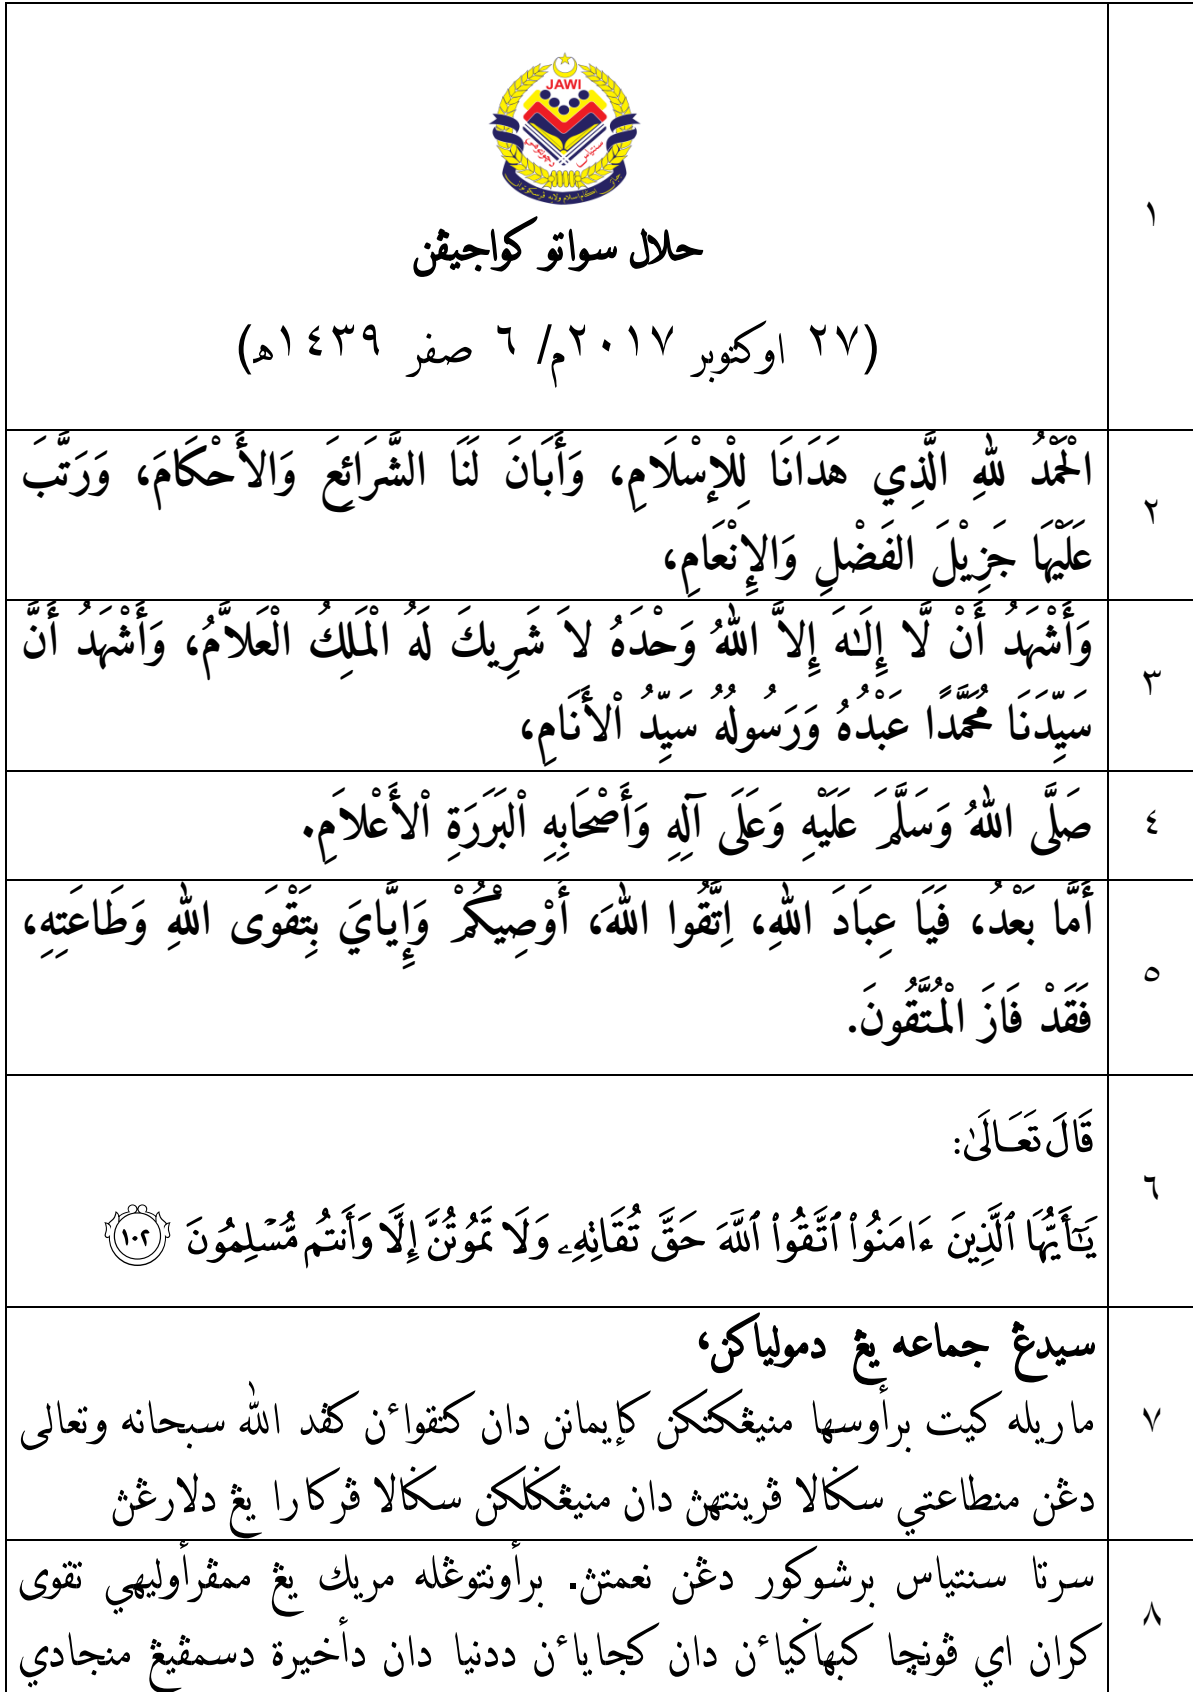 JAWI
١
حلال سواتو كواجيڤن
(٢٧ اوكتوبر ٢٠١٧م/ ٦ صفر ١٤٣٩هـ)
٢
الْحَمْدُ للهِ الَّذِي هَدَانَا لِلْإِسْلَامِ، وَأَبَانَ لَنَا الشَّرَائِعَ وَالأَحْكَامَ، وَرَتَّبَ
عَلَيْهَا جَزِيْلَ الفَضْلِ وَالإِنْعَامِ،
٣
وَأَشْهَدُ أَنْ لَّا إِلَـٰهَ إِلاَّ اللهُ وَحْدَهُ لاَ شَرِيكَ لَهُ الْمَلِكُ الْعَلاَّمُ، وَأَشْهَدُ أَنَّ
سَيِّدَنَا مُحَمَّدًا عَبْدُهُ وَرَسُولُهُ سَيِّدُ اْلأَنَامِ،
٤
صَلَّى اللهُ وَسَلَّمَ عَلَيْهِ وَعَلَى آلِهِ وَأَصْحَابِهِ اْلبَرَرَةِ اْلأَعْلامَِ.
٥
أَمَّا بَعْدُ، فَيَا عِبَادَ اللهِ، اِتَّقُوا اللهَ، أُوْصِيْكُمْ وَإِيَّايَ بِتَقْوَى اللهِ وَطَاعَتِهِ،
فَقَدْ فَازَ الْمُتَّقُونَ.
٦
قَالَ تَعَـالَىٰ:
يَـٰٓأَيُّهَا ٱلَّذِينَ ءَامَنُوا۟ ٱتَّقُوا۟ ٱللَّهَ حَقَّ تُقَاتِهِۦ وَلَا تَمُوتُنَّ إِلَّا وَأَنتُم مُّسْلِمُونَ ١٠٢
٧
سيدڠ جماعه يڠ دمولياكن،
ماريله كيت برأوسها منيڠكتكن كإيمانن دان كتقواءن كڤد الله سبحانه وتعالى
دڠن منطاعتي سݢالا ڤرينتهڽ دان منيڠݢلكن سݢالا ڤركارا يڠ دلارڠڽ
٨
سرتا سنتياس برشوكور دڠن نعمتڽ. برأونتوڠله مريك يڠ ممڤرأوليهي تقوى
كران اي ڤونچا كبهاݢياءن دان كجاياءن ددنيا دان دأخيرة دسمڤيڠ منجادي